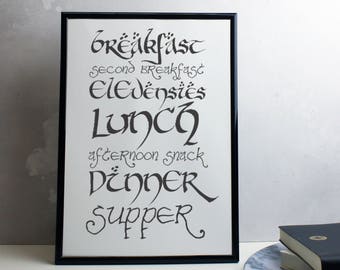 breakfast
second breakfast
elevensies
Lunch
afternoon snack
Dinner
supper